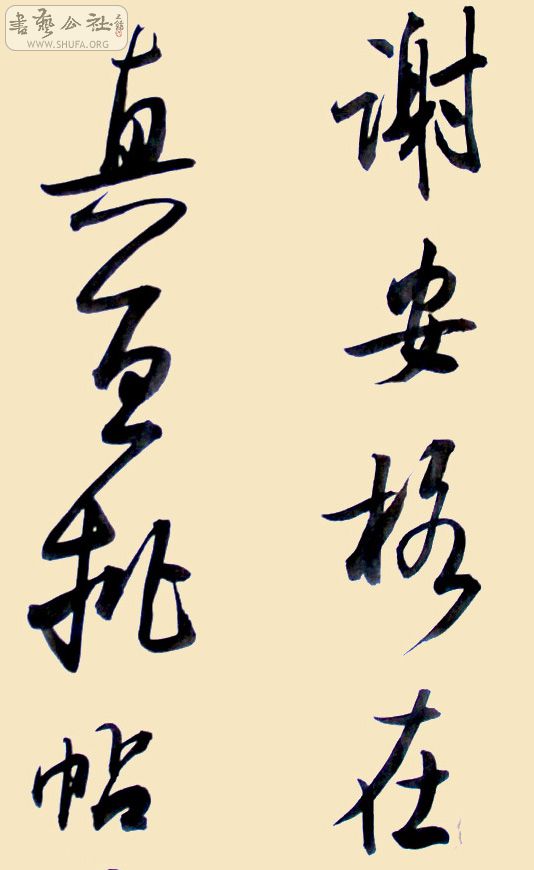 書藝公社
WWW.SHUFA.ORG
谢安格在
真宜批帖